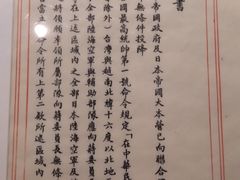 書
帝國政府及日本帝國大本營已向聯合
無條件投降
國最高統帥第一號命令規定「在中華民
除外）台灣與越南北緯十六度以北地
全部陸海空軍與輔助部隊應向蔣委員
在上述區域內之全部日本陸海空軍及
將領願率領所屬部隊向蔣委員長無條
當立即命令所有上第二款所述區域內